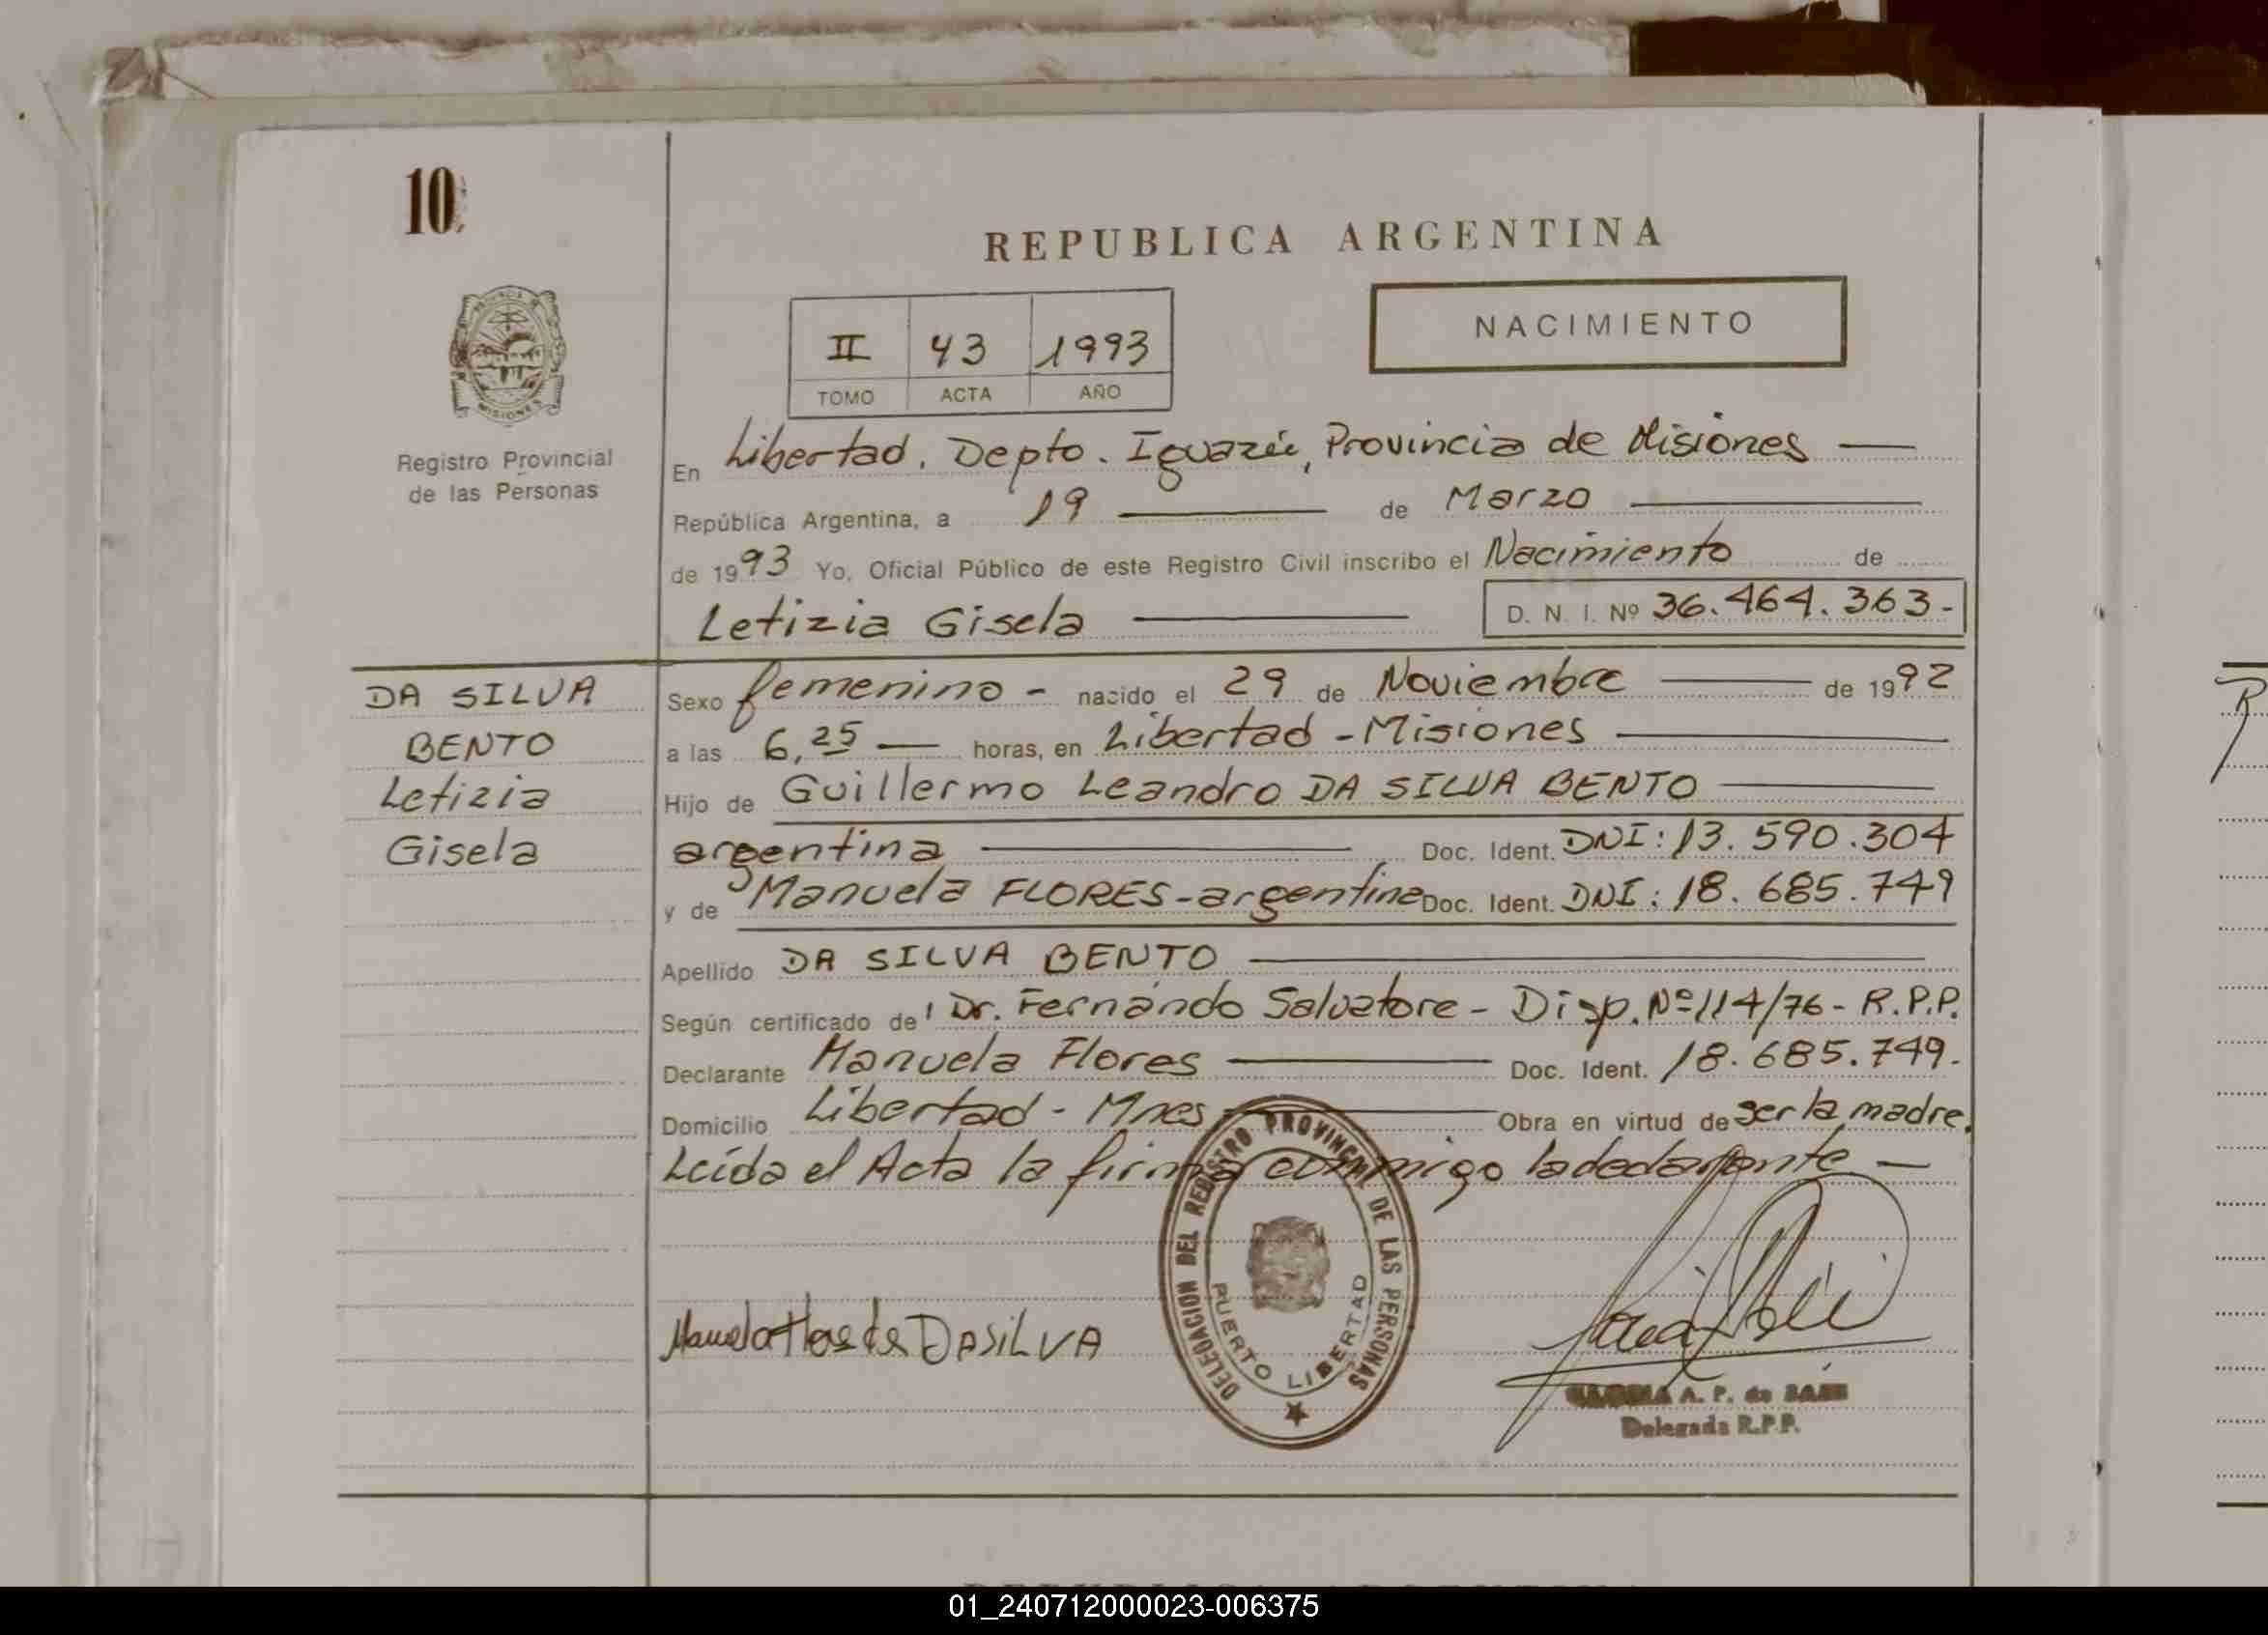 10
REPUBLICA ARGENTINA
NACIMIENTO
II 43 1993
TOMO ACTA AÑO
MISIONES
Registro Provincial
de las Personas
En Libertad, Depto. Iguazú, Provincia de Misiones —
República Argentina, a 19 — de Marzo —
de 1993 Yo, Oficial Público de este Registro Civil inscribo el Nacimiento de
Letizia Gisela — D. N. I. Nº 36.464.363-
DA SILVA
BENTO
Letizia
Gisela
Sexo femenino - nacido el 29 de Noviembre — de 1992
a las 6,25 — horas, en Libertad - Misiones —
Hijo de Guillermo Leandro DA SILVA BENTO —
argentina — Doc. Ident. DNI: 13.590.304
y de Manuela FLORES - argentina Doc. Ident. DNI: 18.685.749
Apellido DA SILVA BENTO —
Según certificado de Dr. Fernando Salvatore - Disp. Nº 114/76 - R.P.P.
Declarante Manuela Flores — Doc. Ident. 18.685.749.
Domicilio Libertad - Mnes — Obra en virtud de ser la madre.
Leída el Acta la firma conmigo la declarante —
DELEGACION DEL REGISTRO PROVINCIAL DE LAS PERSONAS
PUERTO LIBERTAD
DASILVA
A. P. de
Delegada R.P.P.
01_240712000023-006375